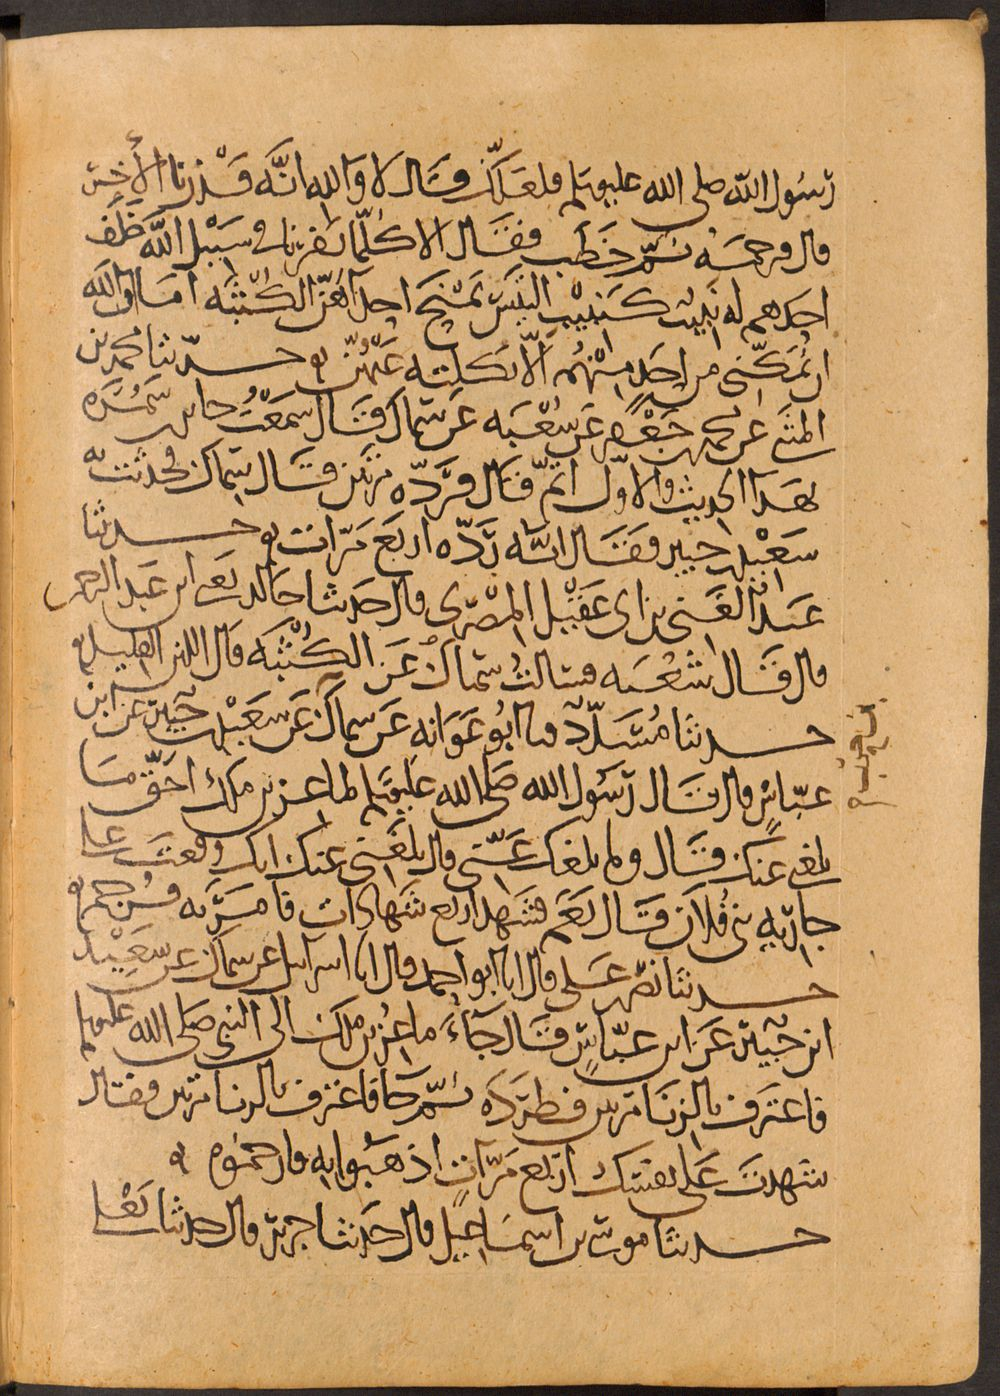 رسول الله صلى الله عليه وسلم فلعلك قال لا والله انه قد زنا الأخر
قال فرجمه ثم خطب فقال الا كلما نفرنا في سبيل الله خلف
احدهم له نبيب كنبيب التيس يمنح احداهن الكثبه اما ان الله
ان يمكني من احد منهم الا نكلته عنهن حدثنا محمد بن
المثنى عن محمد بن جعفر عن شعبه عن سماك قال سمعت جابر بن سمره
بهذا الحديث والاول اتم قال فرده مرتين قال سماك فحدثت به
سعيد بن جبير فقال انه رده اربع مرات حدثنا
عبد الغني بن ابي عقيل المصري قال حدثنا خالد يعني ابن عبد الرحمن
قال قال شعبه فسالت سماك عن الكثبه قال اللبن القليل
حدثنا مسدد نا ابو عوانه عن سماك عن سعيد بن جبير عن ابن
عباس قال قال رسول الله صلى الله عليه وسلم لماعز بن ملك احق ما
بلغني عنك قال وما بلغك عني قال بلغني عنك انك وقعت على
جاريه بني فلان قال نعم فشهد اربع شهادات فامر به فرجم
حدثنا نصر بن علي قال انا ابو احمد قال انا اسرائيل عن سماك عن سعيد
ابن جبير عن ابن عباس قال جاء ماعز بن ملك الى النبي صلى الله عليه وسلم
فاعترف بالزنا مرتين فطرده ثم جا فاعترف بالزنا مرتين فقال
شهدت على نفسك اربع مرات اذهبوا به فارجموه
حدثنا موسى بن اسماعيل قال حدثنا جرير قال حدثنا يعلى